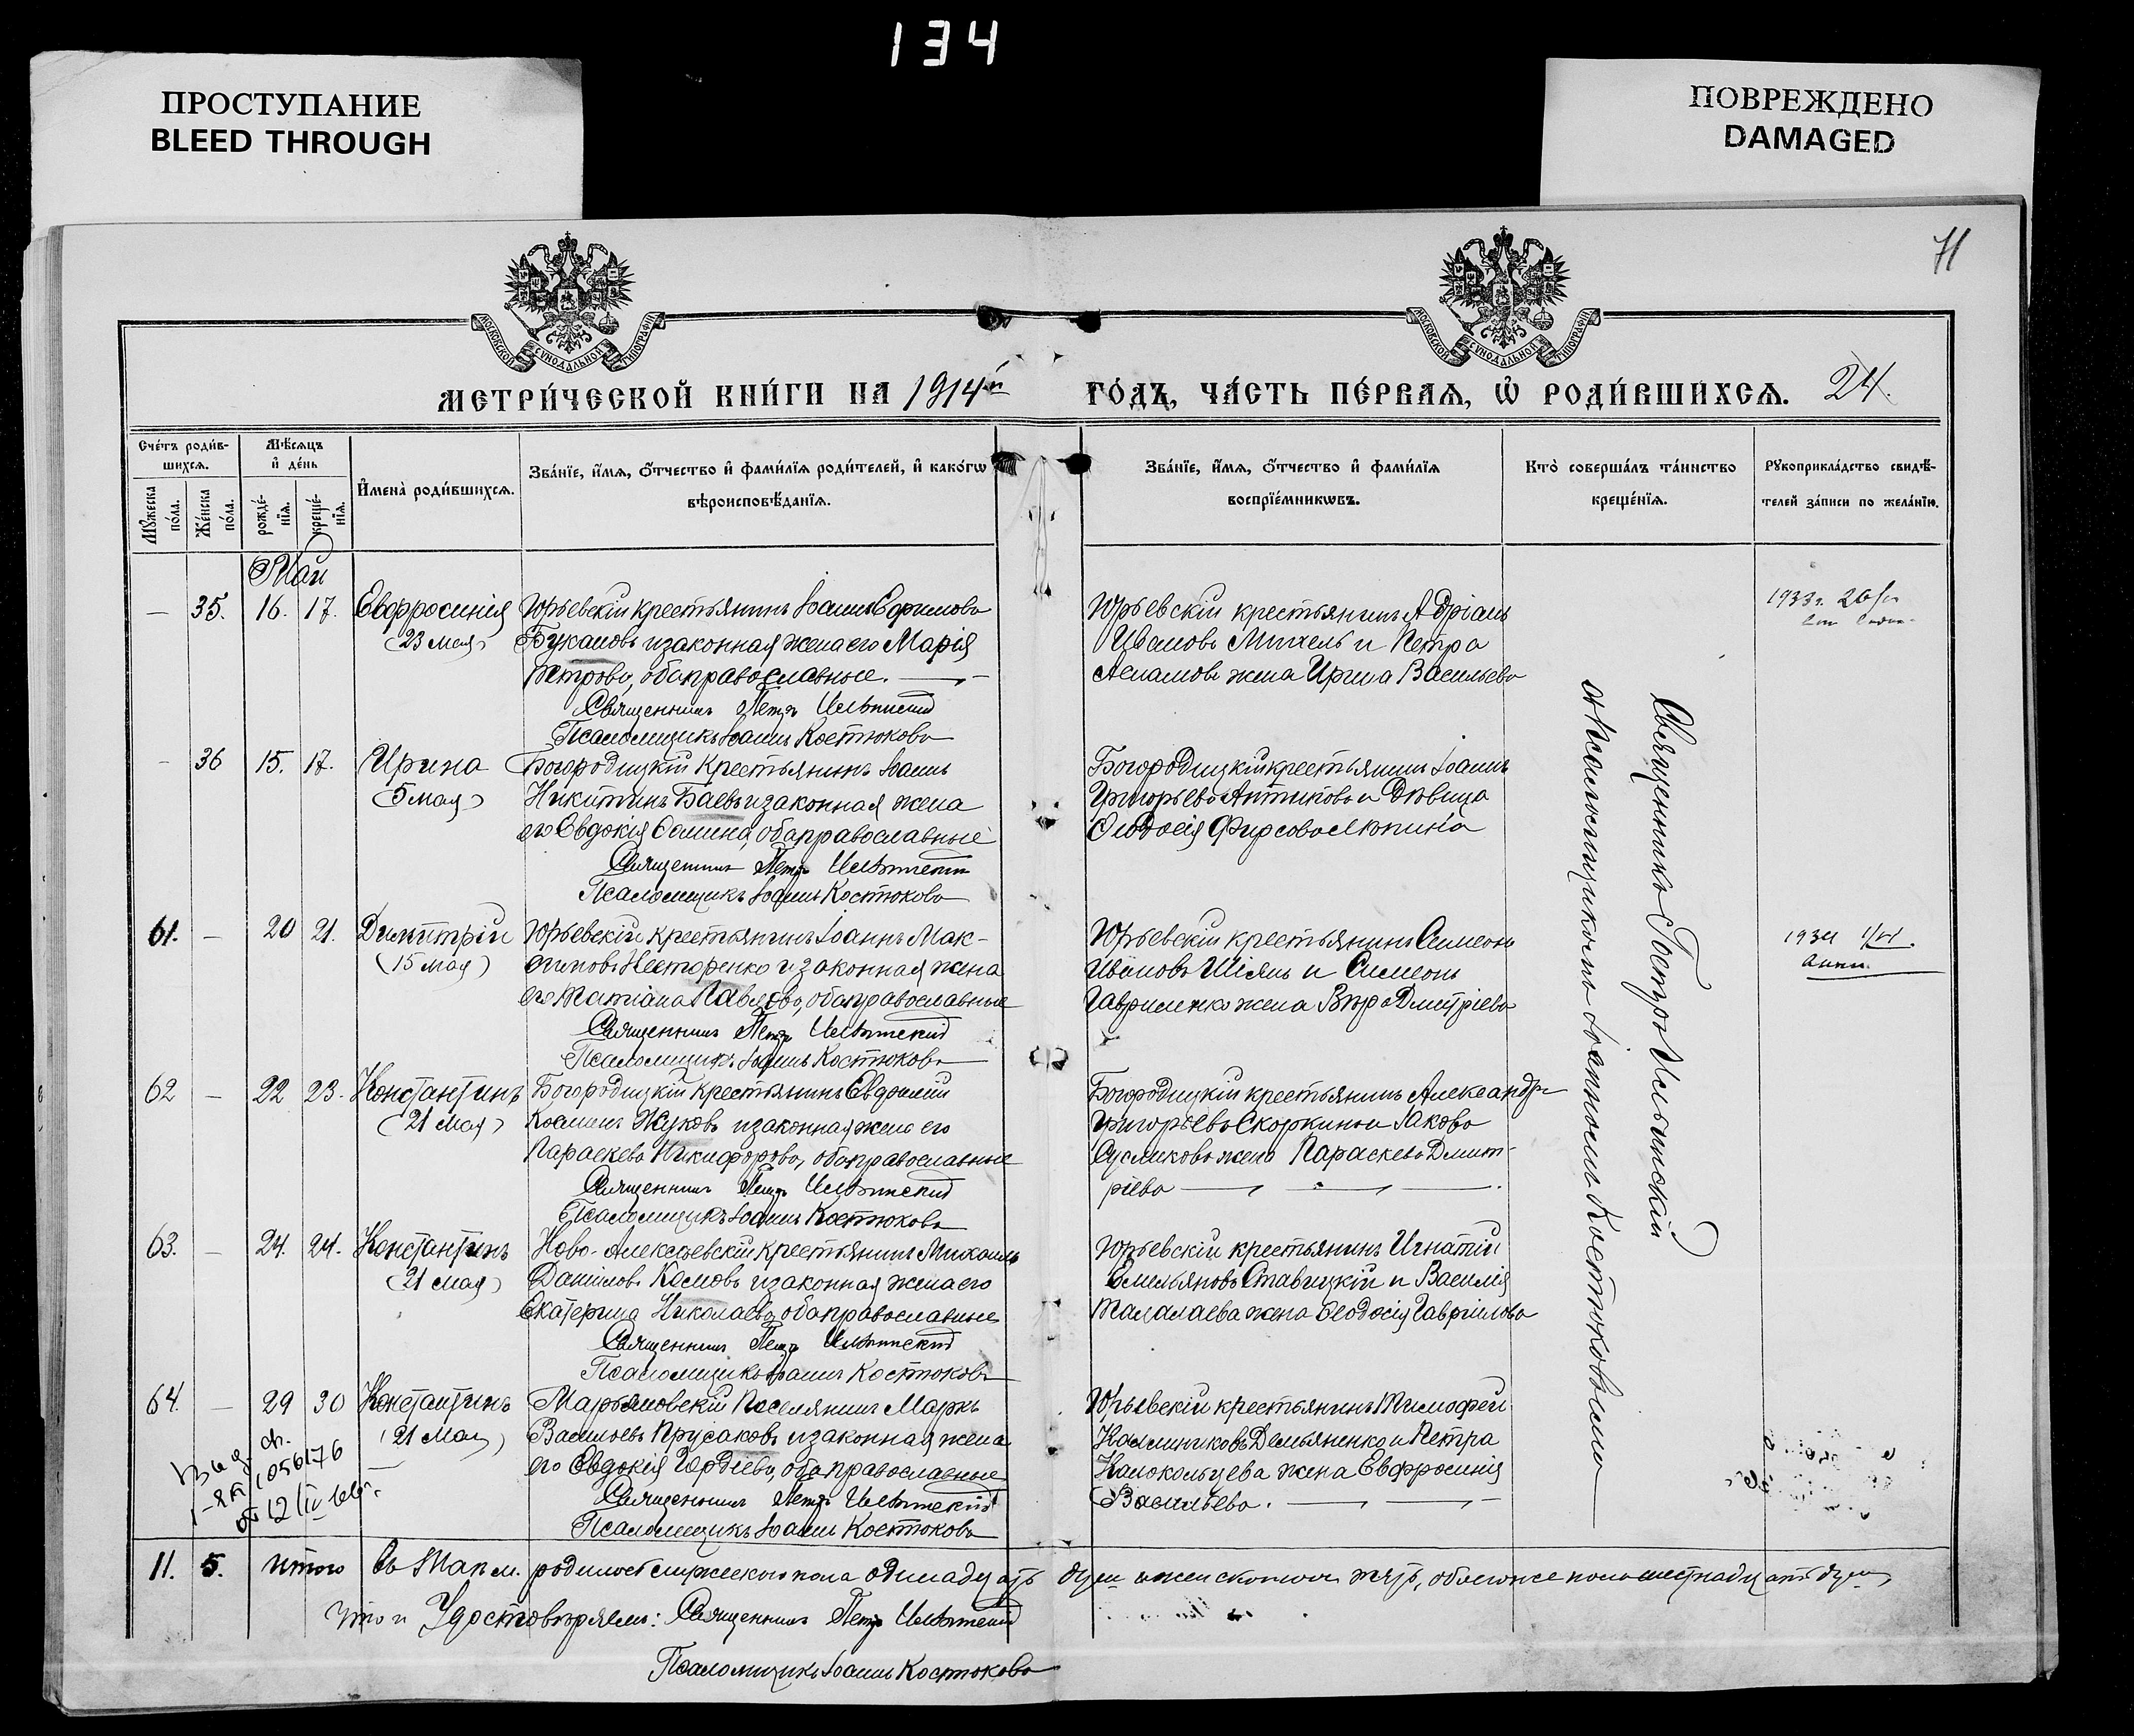 134
ПРОСТУПАНИЕ
BLEED THROUGH
ПОВРЕЖДЕНО
DAMAGED
71
МОСКОВСКОЙ СѴНОДАЛЬНОЙ ТИПОГРАФІИ
МОСКОВСКОЙ СѴНОДАЛЬНОЙ ТИПОГРАФІИ
МЕТРИ́ЧЕСКОЙ КНИ́ГИ НА 1914й ГО́ДЪ, ЧА́СТЬ ПЕ́РВАѦ, Ѡ҆ РОДИ́ВШИХСѦ. 24.
Сче́тъ роди́в-
шихсѧ.
Мꙋжеска по́ла.
Же́нска по́ла.
Мѣ́сѧцъ
и҆ де́нь
рожде́-
нїѧ.
креще́-
нїѧ.
И҆мена̀ роди́вшихсѧ.
Зва́нїе, и҆́мѧ, ѻ҆́тчество и҆ фами́лїѧ роди́телей, и҆ како́гѡ
вѣроисповѣ́данїѧ.
Зва́нїе, и҆́мѧ, ѻ҆́тчество и҆ фами́лїѧ
воспрїе́мникѡвъ.
Кто̀ соверша́лъ та́инство
креще́нїѧ.
Рꙋкоприкла́дство свидѣ́-
телей за́писи по жела́нїю.
Май
— 35. 16. 17. Евфросинія Юрьевскій крестьянинъ Іоаннъ Ефимовъ
(23 мая) Букановъ и законная жена его Марія
Петрова, оба православные.
Священникъ Петръ Ильинскій
Псаломщикъ Іоаннъ Костюковъ
Юрьевскій крестьянинъ Адріанъ
Ивановъ и Петра
жена Ирина Васильева
1933г.
- 36 15. 17. Ирина Богородицкій крестьянинъ Іоаннъ
(5 мая) Никитинъ Баевъ и законная жена
его Евдокія Фомина, оба православные
Священникъ Петръ Ильинскій
Псаломщикъ Іоаннъ Костюковъ
Богородицкій крестьянинъ Іоаннъ
Григорьевъ Антиповъ и Дѣвица
Ѳеодосія Фирсова
61. — 20 21. Димитрій Юрьевскій крестьянинъ Іоаннъ Мак-
(15 мая) симовъ Нестеренко и законная жена
его Татіана Павлова, оба православные
Священникъ Петръ Ильинскій
Псаломщикъ Іоаннъ Костюковъ
Юрьевскій крестьянинъ Симеонъ
Ивановъ Шіянъ и Симеона
Гавриленко жена Вѣра Дмитріева
1934
62 — 22 23. Константинъ Богородицкій крестьянинъ Евдокимъ
(21 мая) Косминъ Жуковъ и законная жена его
Параскева Никифорова, оба православные
Священникъ Петръ Ильинскій
Псаломщикъ Іоаннъ Костюковъ
Богородицкій крестьянинъ Александръ
Григорьевъ Скоркинъ и Іакова
Сусликова жена Параскева Дмит-
ріева
63. — 24. 24. Константинъ Ново-Алексѣевскій крестьянинъ Михаилъ
(21 мая) Даниловъ и законная жена его
Екатерина Николаева, оба православные
Священникъ Петръ Ильинскій
Псаломщикъ Іоаннъ Костюковъ
Юрьевскій крестьянинъ Игнатій
Емельяновъ Ставицкій и Василія
Малалаева жена Ѳеодосія Гавріилова
64. — 29 30 Константинъ Марьяновскій Поселянинъ Маркъ
(21 мая) Васильевъ Прусаковъ и законная жена
его Евдокія Гордіева, оба православные
Священникъ Петръ Ильинскій
Псаломщикъ Іоаннъ Костюковъ
Юрьевскій крестьянинъ Тимофей
Каллиниковъ Демьяненко и Петра
Колокольцева жена Евфросинія
Васильева.
Священникъ Петръ Ильинскій
съ Псаломщикомъ Іоанномъ Костюковымъ
11. 5. Итого въ Маѣ м. родилось мужескаго пола одинадцать душ а женскаго пять, обоего же пола шестнадцать душ,
что и Удостовѣряемъ: Священникъ Петръ Ильинскій
Псаломщикъ Іоаннъ Костюковъ